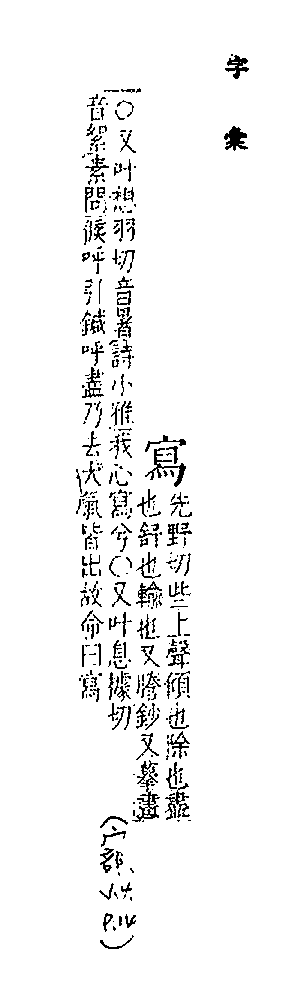 字彙
寫
先野切些上聲傾也除也盡
也舒也輸也又謄鈔又摹畫
〇又叶想羽切音暑詩小雅我心寫兮〇又叶息據切
音絮素問候呼引鍼呼盡乃去大氣皆出故命曰寫
(宀部,
P.14)